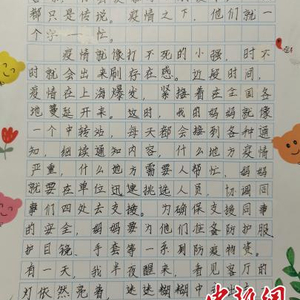 都只是传说。疫情之下，他们就
一个
疫情就像打不死的小强，时不
时就会出来刷存在感。这段时间，
疫情在上海爆发，紧接着在全国各
地蔓延开来。这时，我的妈妈就像
一个中转站，每天都会接到各种通
知，细读通知内容，什么地方疫情
严重，什么地方需要人帮忙。妈妈
就要在单位迅速挑选人员，协调同
事们四处去支援。为确保支援同事
的安全，妈妈要为他们在备防护服
护目镜、手套等一系列防疫物资。
有一天，我半夜醒来，看见客厅的
灯依然亮着，迷迷糊糊中
中新网